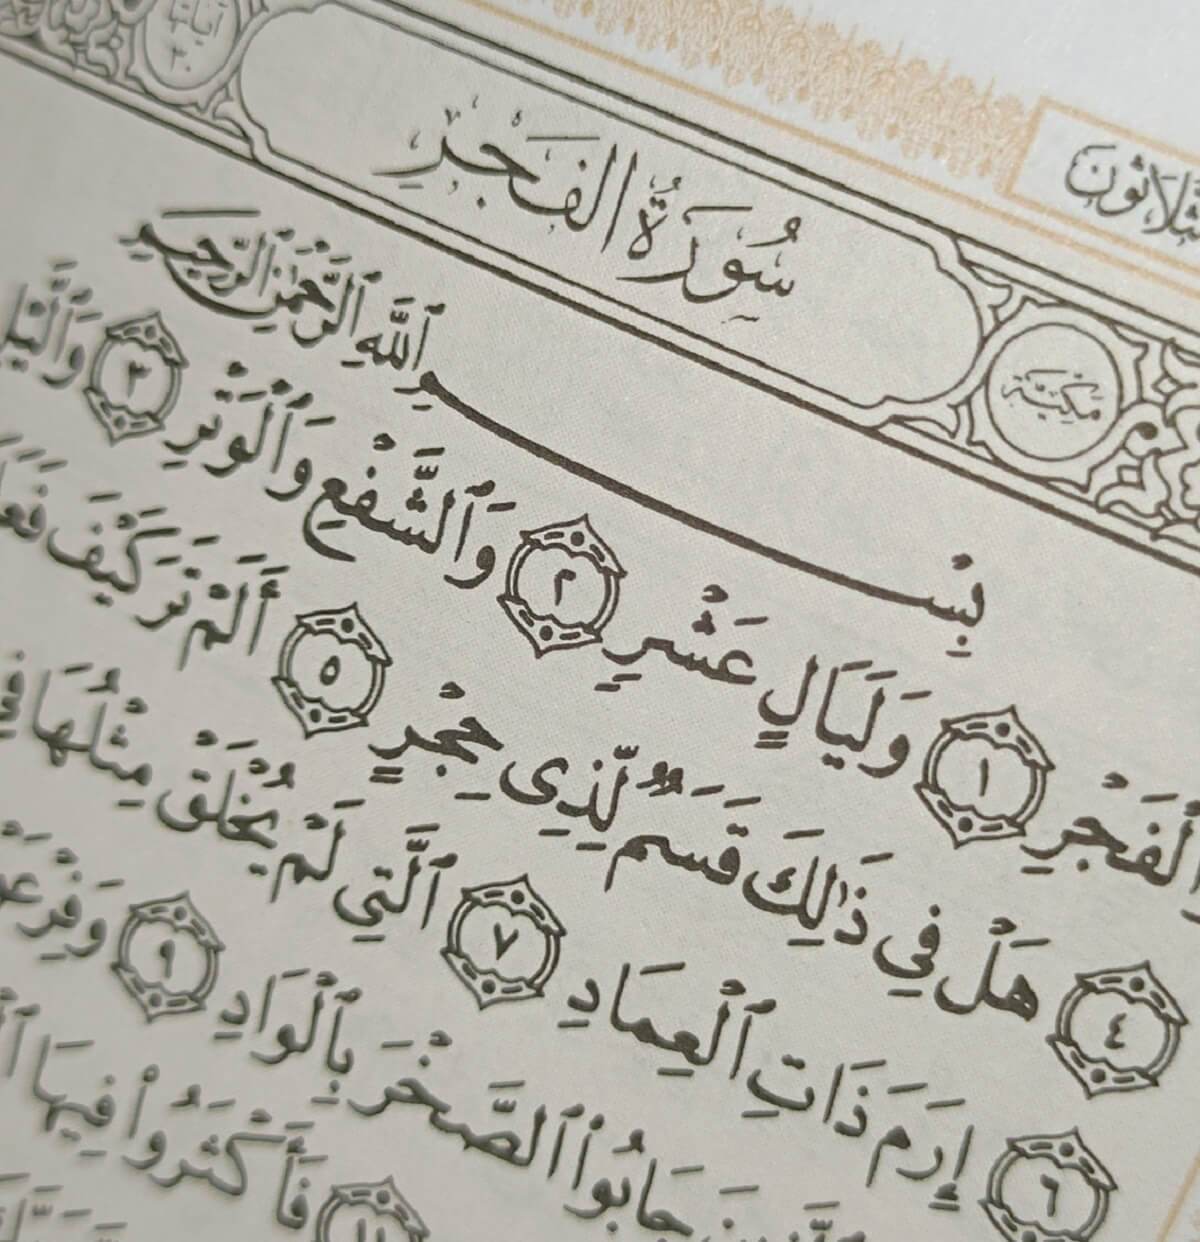 آياتها ٣٠
سُورَةُ الفَجْرِ
مكية
بِسْمِ ٱللَّهِ ٱلرَّحْمَٰنِ ٱلرَّحِيمِ
ٱلْفَجْرِ ١ وَلَيَالٍ عَشْرٍ ٢ وَٱلشَّفْعِ وَٱلْوَتْرِ ٣
٤ هَلْ فِي ذَٰلِكَ قَسَمٌ لِّذِي حِجْرٍ ٥ أَلَمْ تَرَ كَيْفَ
٦ إِرَمَ ذَاتِ ٱلْعِمَادِ ٧ ٱلَّتِي لَمْ يُخْلَقْ مِثْلُهَا
جَابُوا۟ ٱلصَّخْرَ بِٱلْوَادِ ٩
١١ فَأَكْثَرُوا۟ فِيهَا